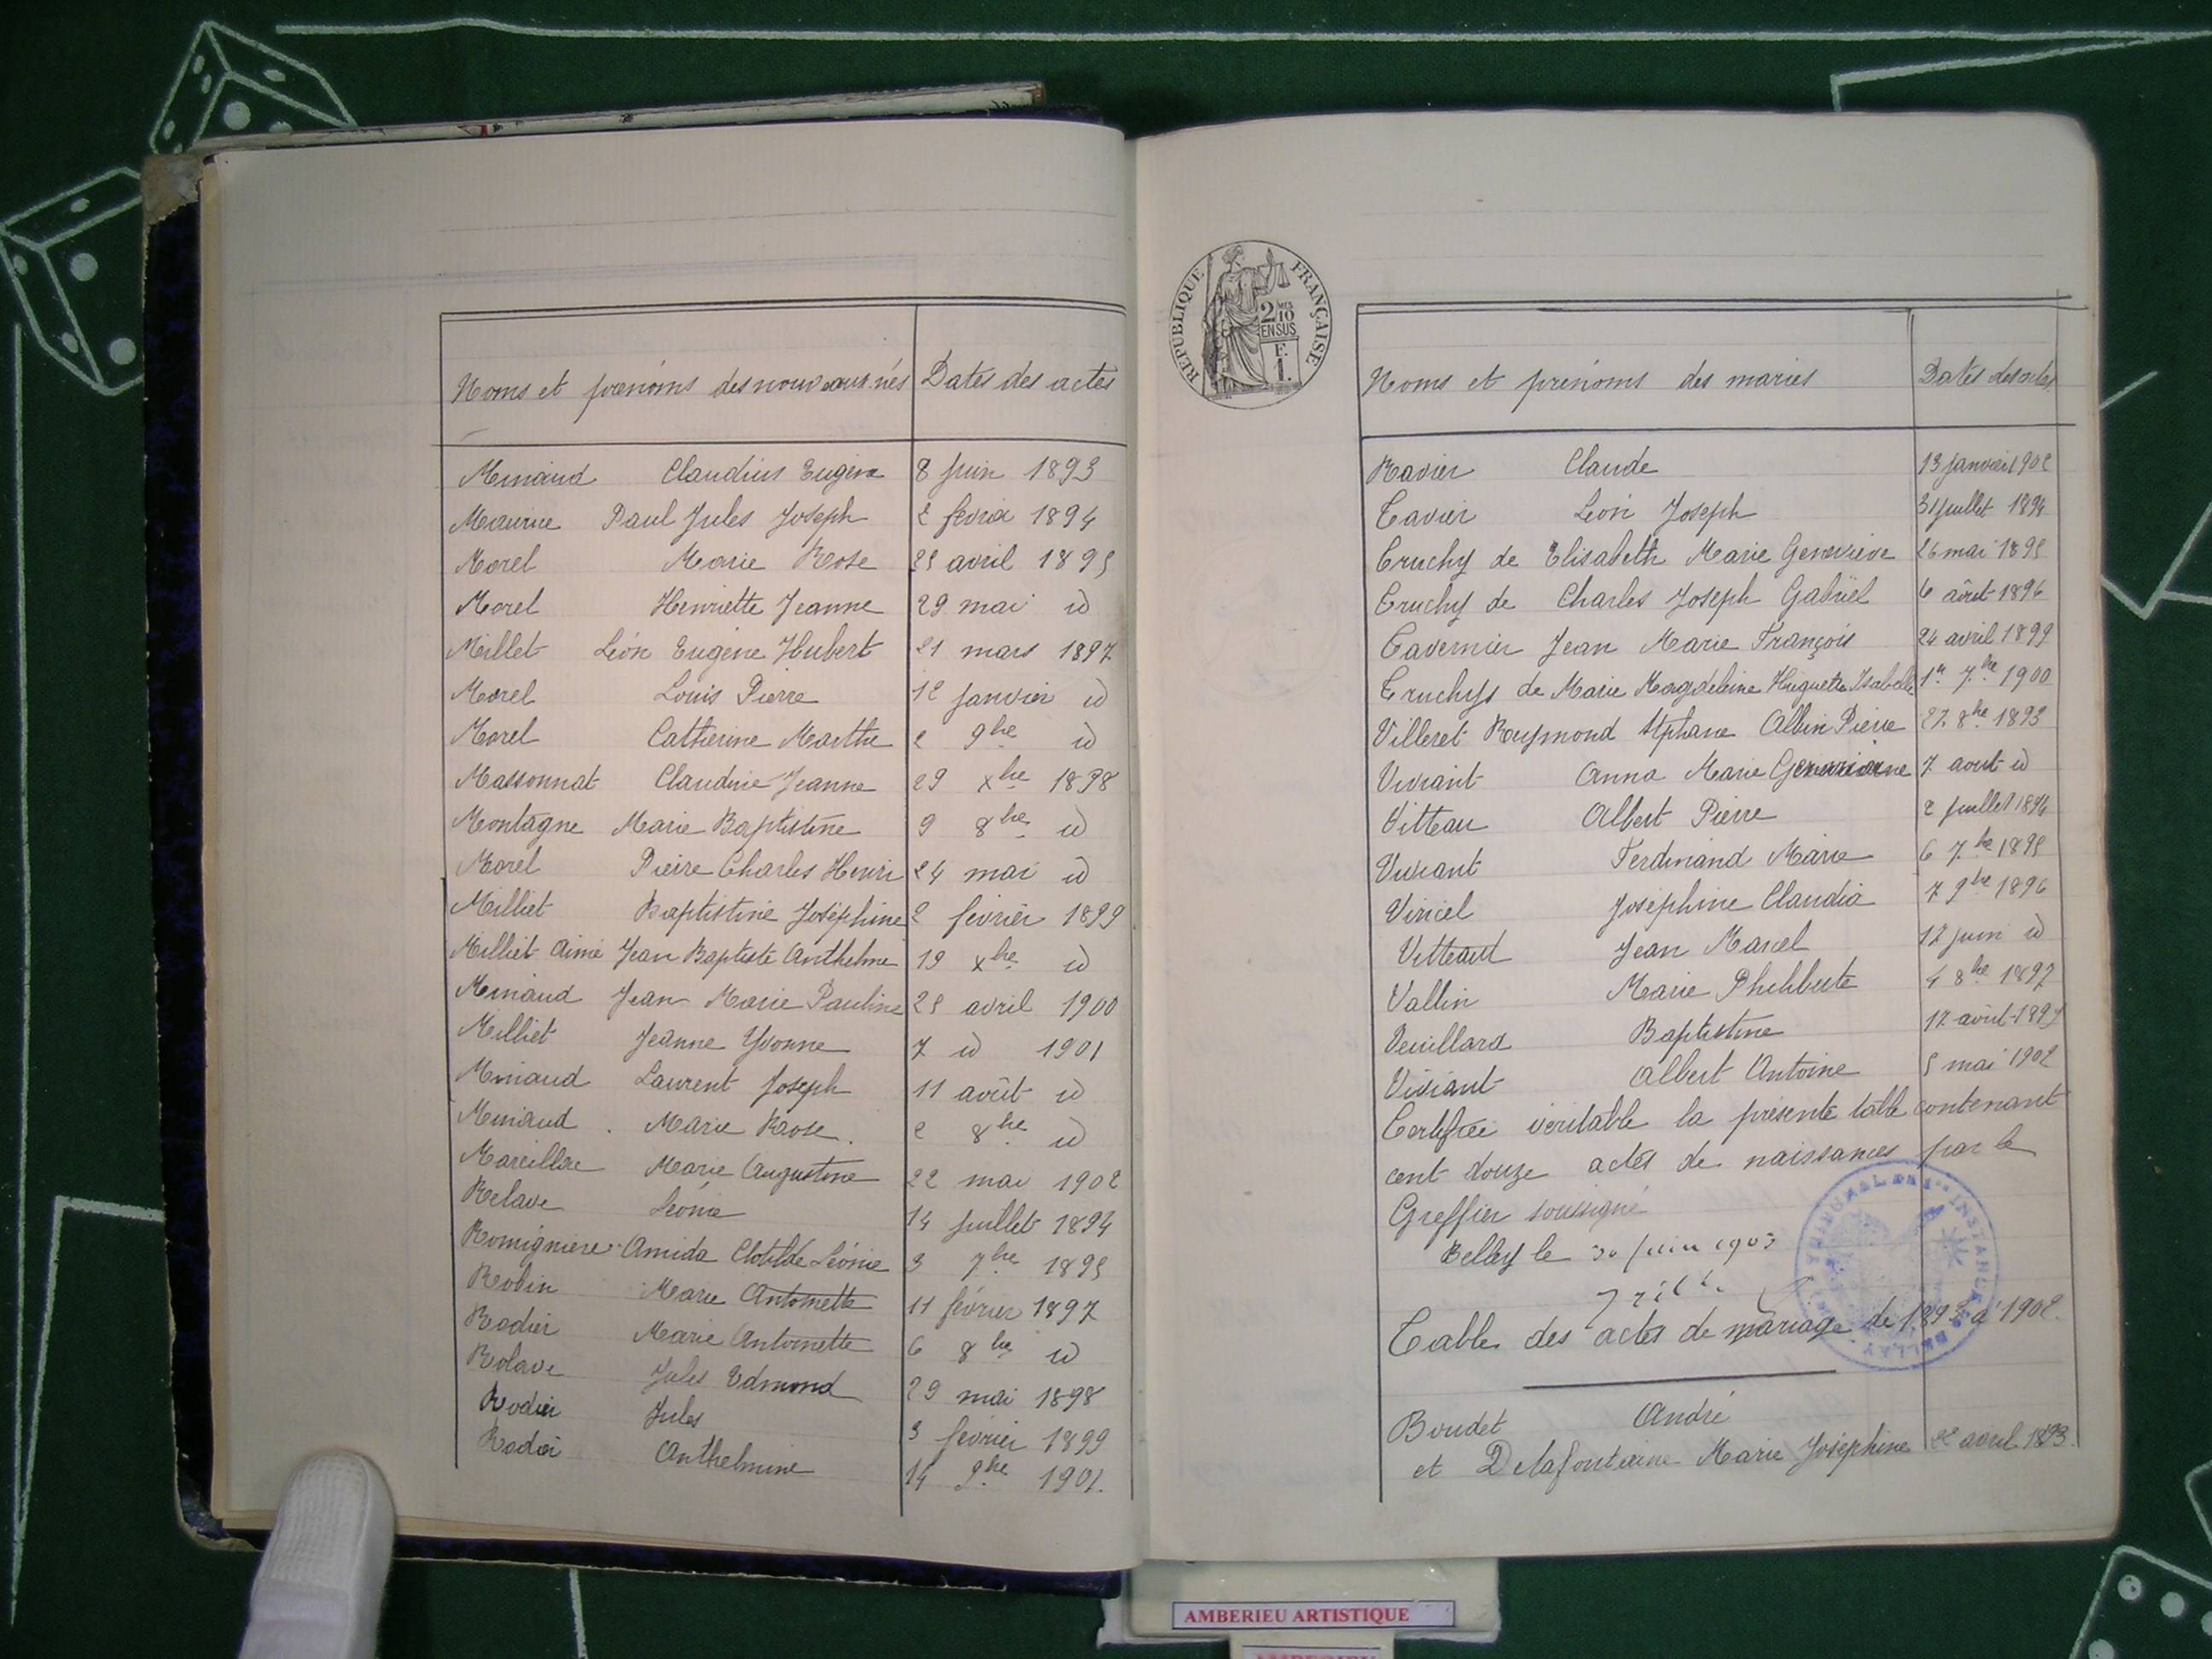 Noms et prénoms des nouveaux-nés Dates des actes
Minaud Claudius Eugène 8 juin 1893
Maurice Paul Jules Joseph 2 février 1894
Morel Marie Rose 25 avril 1895
Morel Henriette Jeanne 29 mai id
Millet Léon Eugène Hubert 21 mars 1897
Morel Louis Pierre 12 janvier id
Morel Catherine Marthe 2 9bre id
Massonnat Claudine Jeanne 29 xbre 1898
Montagne Marie Baptistine 9 8bre id
Morel Pierre Charles Henri 24 mai id
Milliet Baptistine Joséphine 2 février 1899
Milliet Aimé Jean Baptiste Anthelme 19 xbre id
Minaud Jean Marie Pauline 25 avril 1900
Milliet Jeanne Yvonne 7 id 1901
Minaud Laurent Joseph 11 août id
Minaud Marie Rose 2 8bre id
Marie Augustine 22 mai 1902
Relave Léonie 14 juillet 1894
Romignière Amida Clotilde Léonie 3 7bre 1895
Robin Marie Antoinette 11 février 1897
Rodier Marie Antoinette 6 8bre id
Rolave Jules Edmond 29 mai 1898
Rodier Jules 3 février 1899
Rodier Anthelmine 14 9bre 1901.
REPUBLIQUE FRANÇAISE
2/10 MES
EN SUS
F.
1.
Noms et prénoms des mariés Dates des actes
Ravier Claude 13 janvier 1902
Tavier Léon Joseph 31 juillet 1894
Truchy de Elisabeth Marie Geneviève 26 mai 1895
Truchy de Charles Joseph Gabriel 6 août 1896
Tavernier Jean Marie François 24 avril 1899
Truchys de Marie Magdeleine Huguette Isabelle 1er 7bre 1900
Villeret Raymond Stphane Albin Pierre 27 8bre 1893
Viviant Anna Marie 7 aout id
Vitteau Albert Pierre 2 juillet 1894
Viviant Ferdinand Marie 6 7bre 1895
Viricel Joséphine Claudia 7 9bre 1896
Vitteaud Jean Marcel 12 juin id
Vallin Marie Philiberte 4 8bre 1897
Veuillard Baptistine 12 août 1899
Viviant Albert Antoine 5 mai 1902
Certifiée véritable la présente table contenant
cent douze actes de naissances par le
Greffier soussigné
Belley le 30 juin 1903
TRIBUNAL DE 1ère INSTANCE DE BELLEY
Table des actes de mariage de 1893 à 1902.
Boudet André
et Delafontaine Marie Joséphine 22 avril 1893.
AMBERIEU ARTISTIQUE